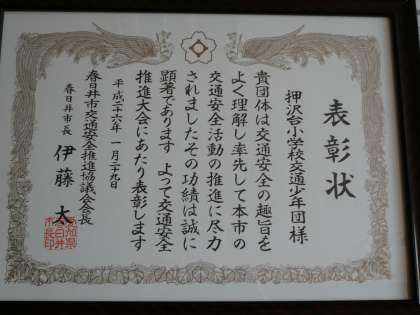 表彰状
押沢台小学校交通少年団 様
貴団体は交通安全の趣旨を
よく理解し率先して本市の
交通安全活動の推進に尽力
されましたその功績は誠に
顕著であります よって交通安全
推進大会にあたり表彰します
平成二十六年 一月二十九日
春日井市交通安全推進協議会会長
春日井市長 伊藤 太
愛知県
春日井
市長印